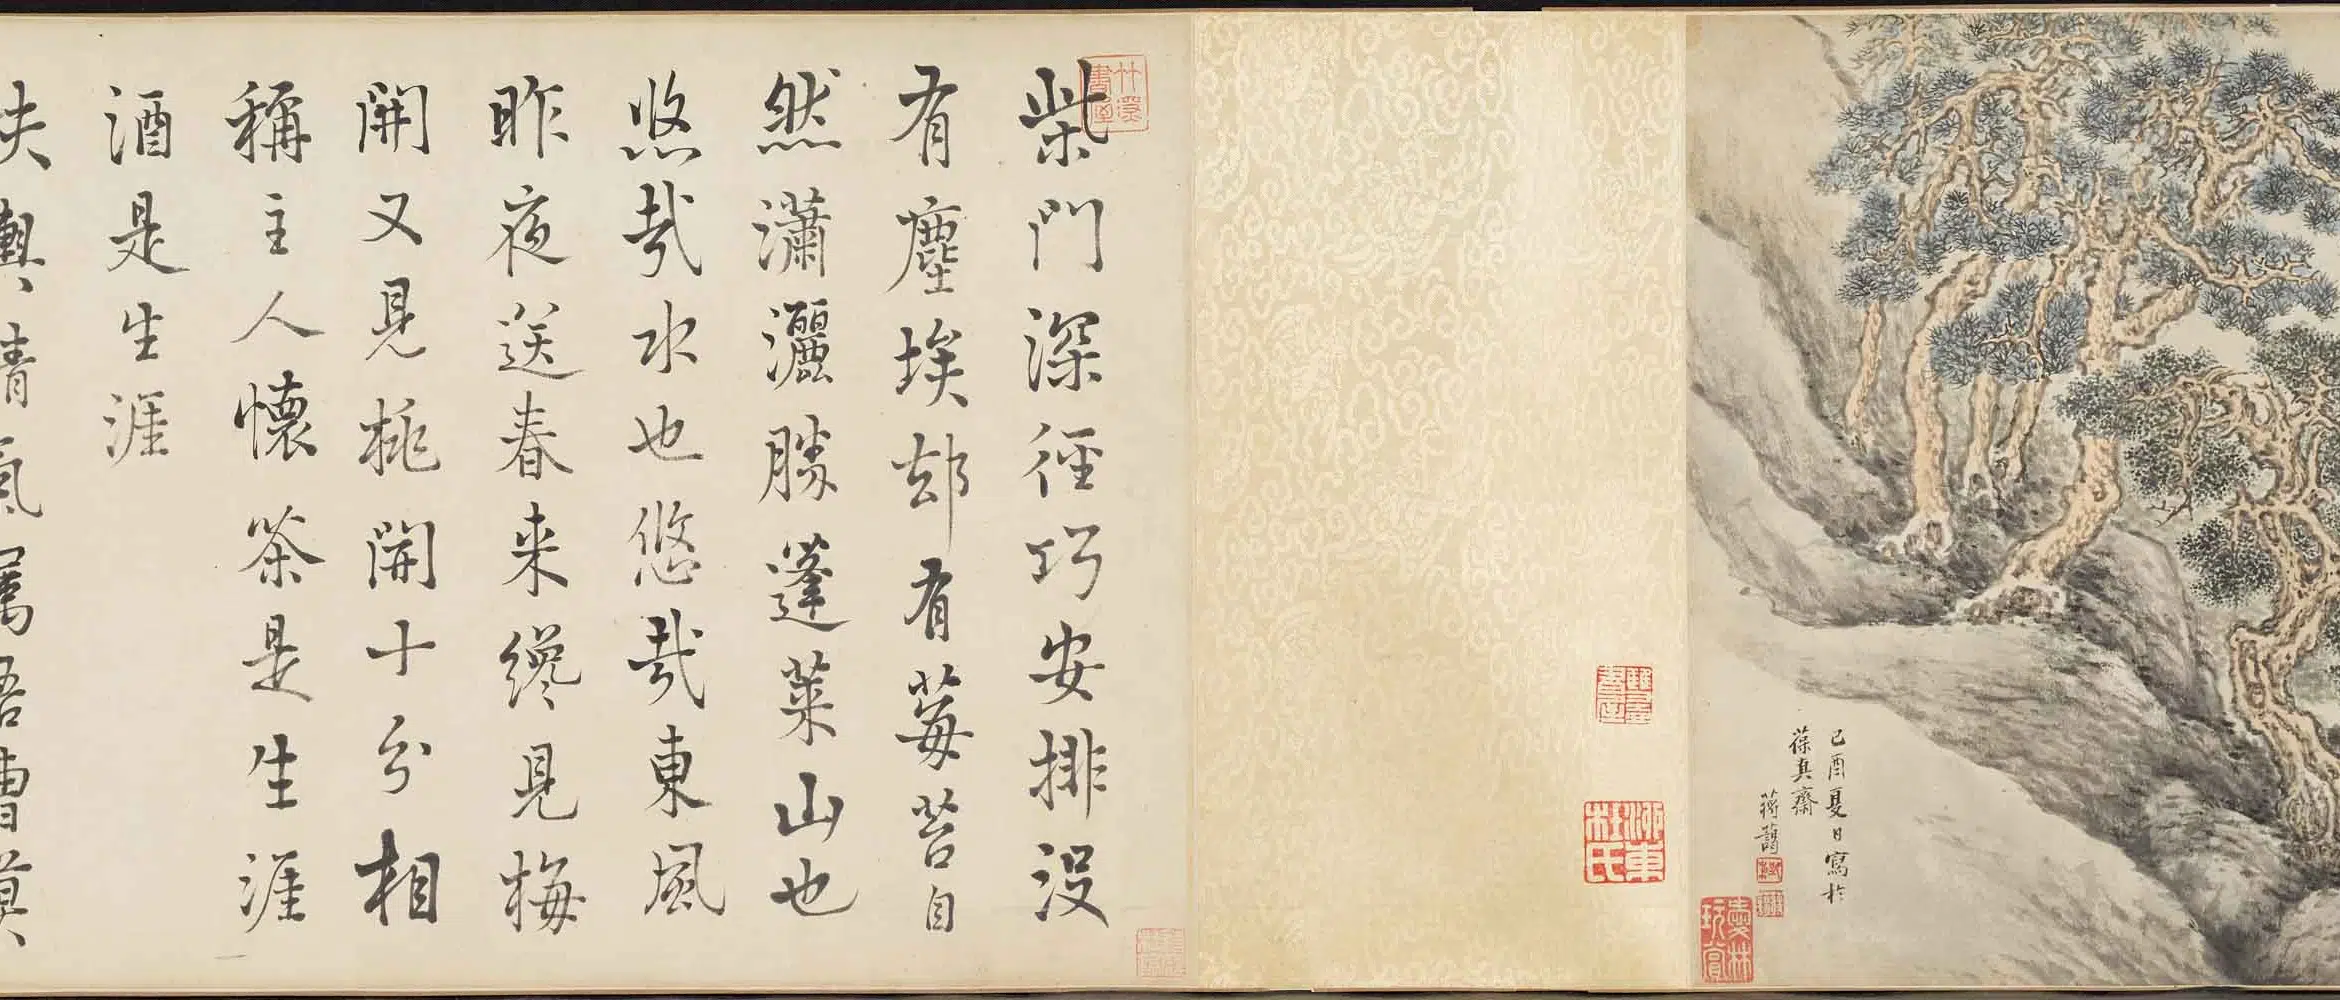 己酉夏日寫於
葆真齋
蔣藹
柴門深徑巧安排没
有塵埃却有莓苔自
然瀟灑勝蓬萊山也
悠哉水也悠哉東風
昨夜送春来纔見梅
開又見桃開十分相
稱主人懷茶是生涯
酒是生涯
扶輿清氣屬吾曹莫